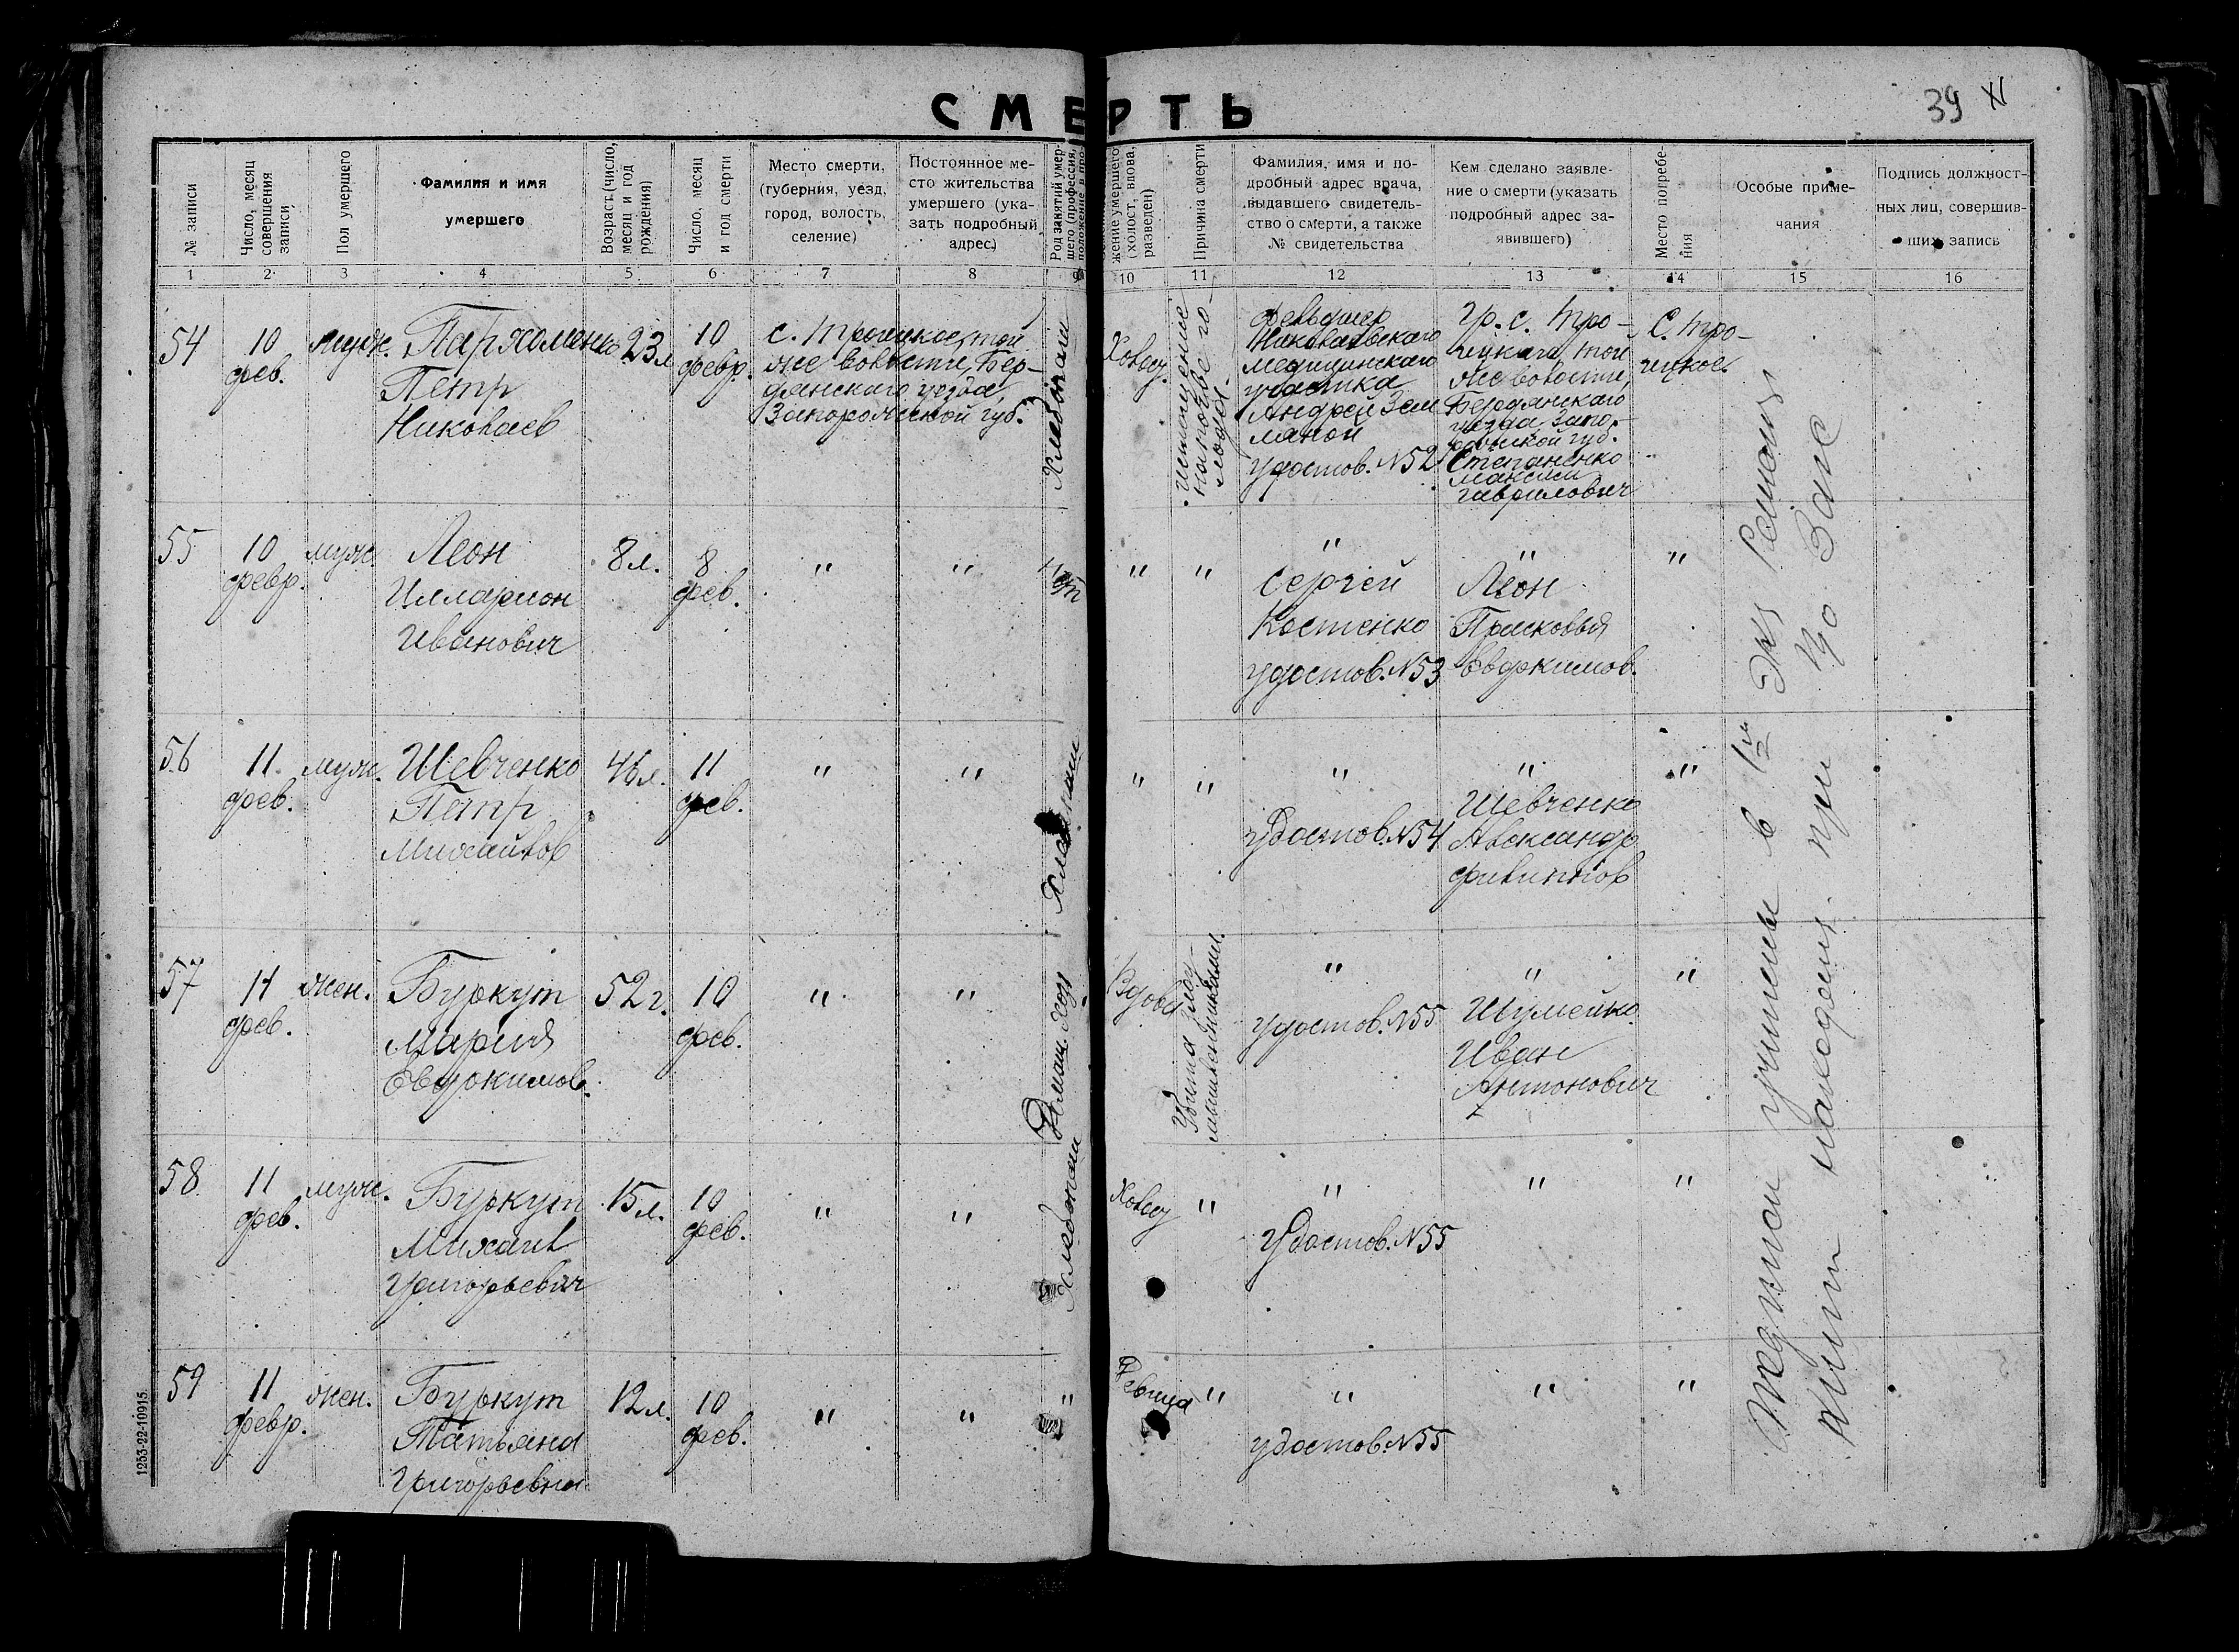 СМЕРТЬ
39
№ записи
Число, месяц совершения записи
Пол умершего
Фамилия и имя умершего
Возраст, (число, месяц и год рождения)
Число, месяц и год смерти
Место смерти, (губерния, уезд, город, волость, селение)
Постоянное место жительства умершего (указать подробный адрес)
Род занятий умершего (профессия, положение в про-
жение умершего (холост, вдова, разведен)
Причина смерти
Фамилия, имя и подробный адрес врача, выдавшего свидетельство о смерти, а также № свидетельства
Кем сделано заявление о смерти (указать подробный адрес заявившего)
Место погребения
Особые примечания
Подпись должностных лиц, совершивших запись
1 2 3 4 5 6 7 8 9 10 11 12 13 14 15 16
54
10
фев.
муж.
Пархоменко
Петр
Николаев
23л
10
февр.
с. Троицкое, той
же волости, Бер-
дянского уезда,
Запорожской губ.
Хлебопаш
Холост
Истощение
на почве го-
лода
фельдшер
Николаевского
медицинского
участка
Андрей Зем
ляной
удостов. №52
Гр. с. Тро-
ицкаго, той
же волости,
Бердянскаго
уезда, Запо-
рожской губ.
Степаненко
Максим
Гаврилович
С. Тро-
ицкое
55
10
февр.
муж
Леон
Илларион
Иванович
8л.
8
фев.
"
"
"
"
"
Сергей
Костенко
удостов. №53
"
Леон
Прасковья
Евдокимов.
"
56
11
фев.
муж.
Шевченко
Петр
Михайлов
46л.
11
фев.
"
"
Хлебопаш
"
"
"
удостов. №54
"
Шевченко
Александр
Филиппов
"
57
11
фев.
жен.
Буркут
Мария
Евдокимов.
52г.
10
фев.
"
"
Домаш. хоз.
Вдова
Убита
"
удостов. №55
"
Шумейко
Иван
Антонович
"
58
11
фев.
муж.
Буркут
Михаил
Григорьевич
15л.
10
фев.
"
"
Хлебопаш
Холост
"
"
Удостов. №55
"
"
59
11
февр.
жен.
Буркут
Татьяна
Григорьевна
12л.
10
фев.
"
"
"
Девица
"
"
удостов. №55
"
"
в 1й Экз
при Загс
1253-22-10915